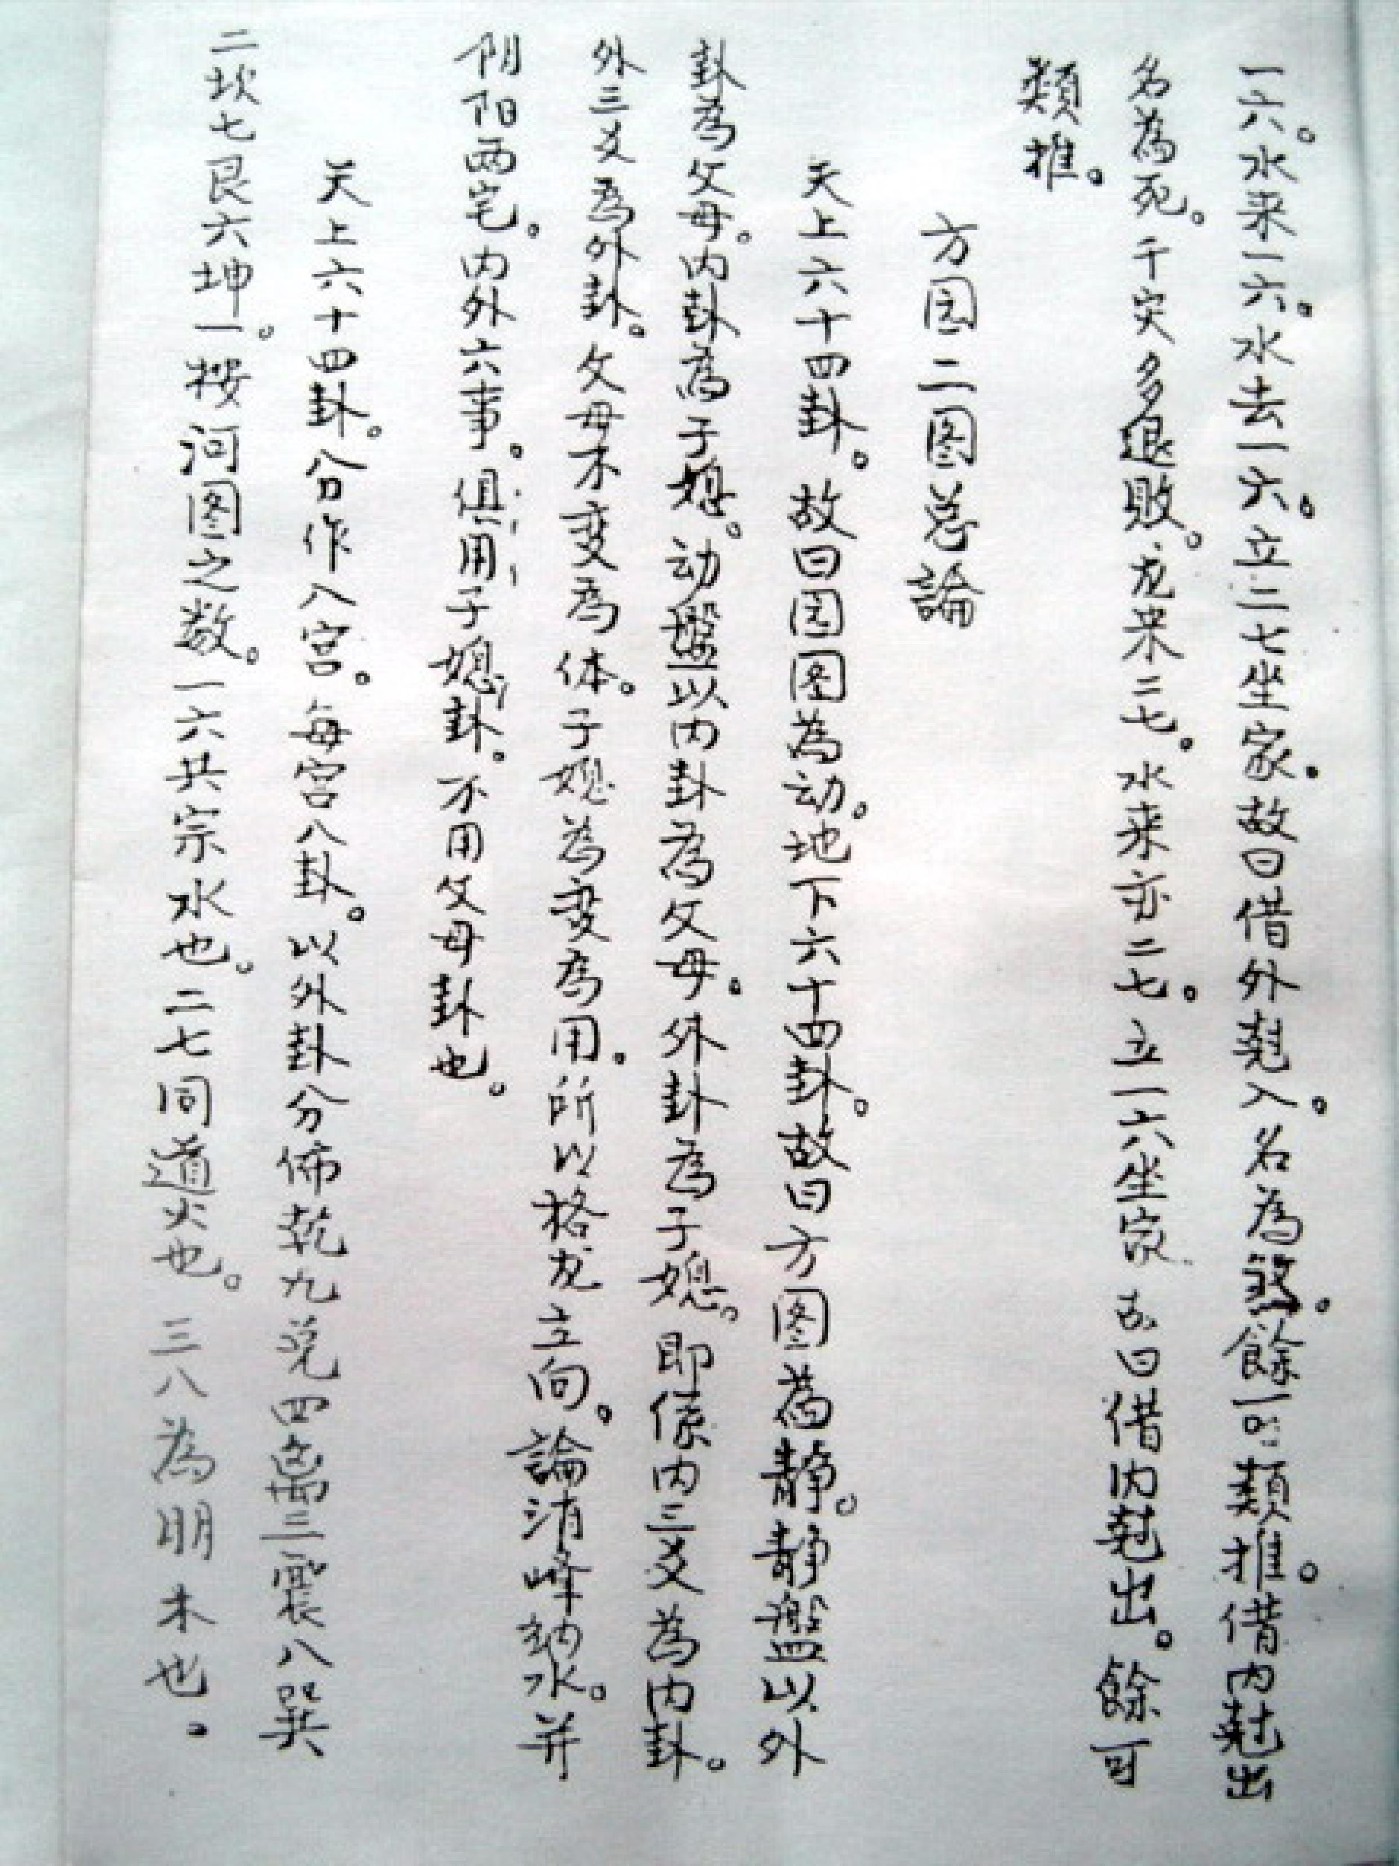 一六。水来一六。水去一六。立二七坐家。故曰借外尅入。名為殺。餘可類推。借内尅出
名為死。千灾多退敗。龙来二七。水来亦二七。立一六坐家 故曰借内尅出。餘可
類推。
方园二图总論
天上六十四卦。故曰园图為动。地下六十四卦。故曰方图為静。静盤以外
卦為父母。内卦為子媳。动盤以内卦為父母。外卦為子媳。即係内三爻為内卦。
外三爻為外卦。父母不变為体。子媳為变為用。所以格龙立向。論消峰納水。并
阴阳两宅。内外六事。俱用子媳卦。不用父母卦也。
天上六十四卦。分作八宫。每宫八卦。以外卦分佈乾九兑四離三震八巽
二坎七艮六坤一。按河图之数。一六共宗水也。二七同道火也。三八為朋木也。